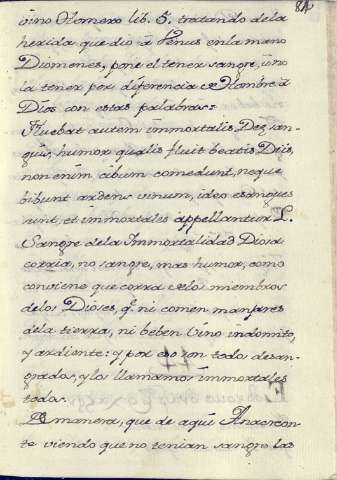 84
vino Homero lib. 5. tratando dela
herida, que dio â Venus en la mano
Diomenes, pone el tener sangre, û no
la tener por diferencia de Hombre â
Dios con estas palabras:
Fluebat autem immortalis Deæ san-
guis, humor qualis fluit beatis Diis,
non enim cibum comedunt, neque
bibunt ardens vinum, ideo exangues
sunt, et immortales appellantur L.
Sangre dela Immortalidad Diosa
corria, no sangre, mas humor, como
conviene que corra de los miembros
delos Dioses, q.e ni comen manjares
dela tierra, ni beben Vino indomito,
y ardiente: y por eso son todos desan-
grados, y los llamamos immortales
todos.
De manera, que de aqui Anacreon-
te viendo que no tenian sangre las